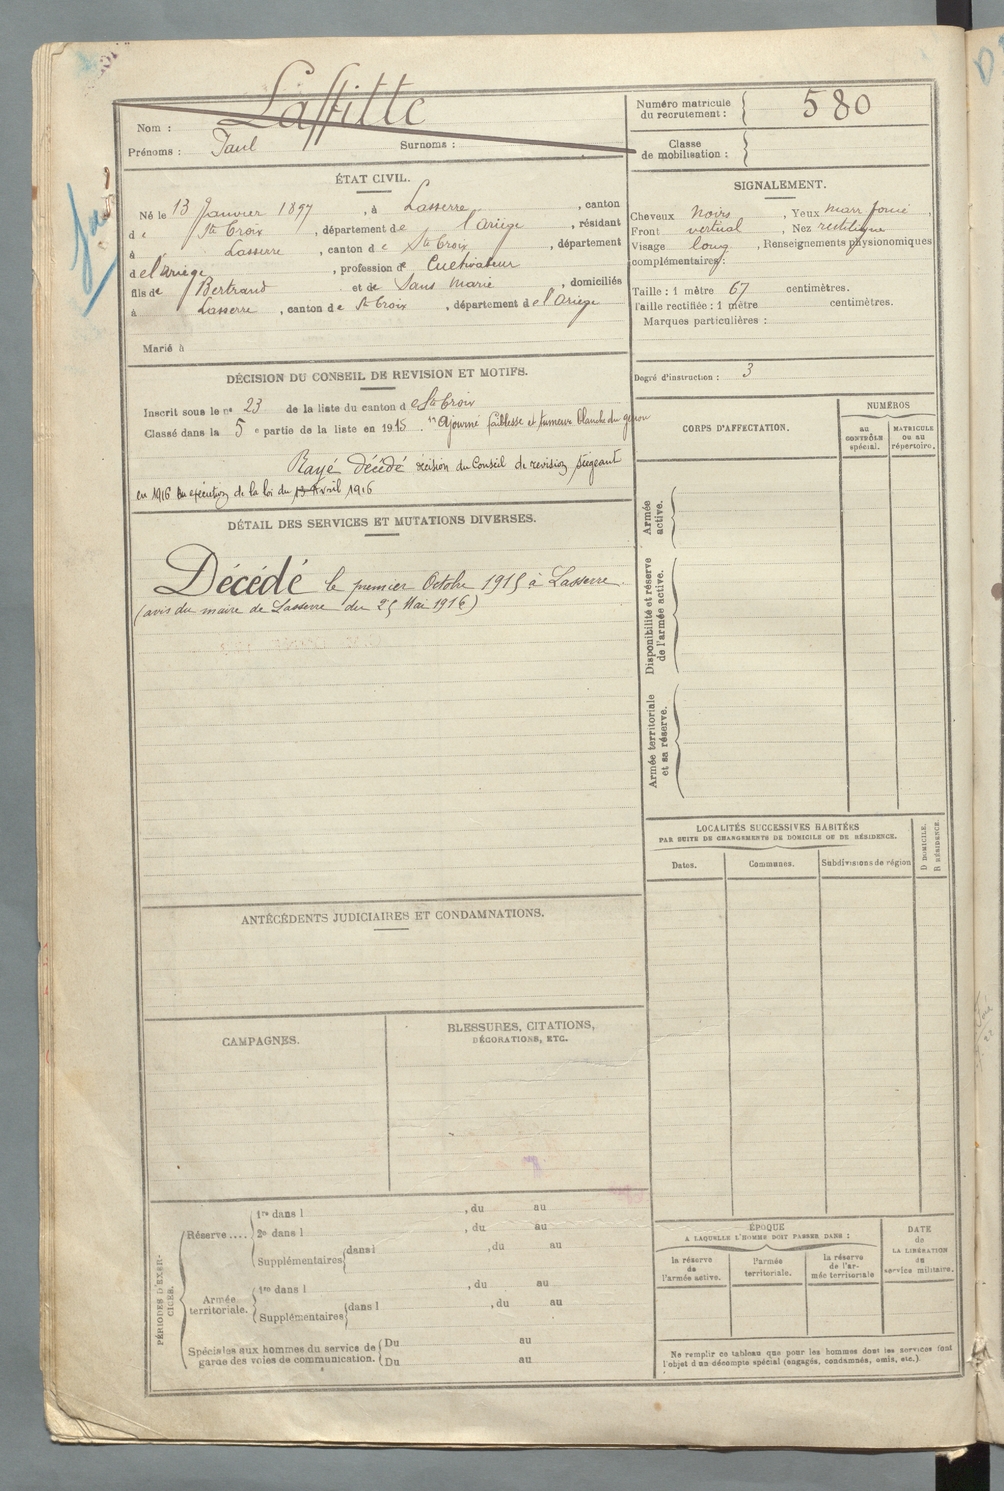 Laffitte
Nom :
Prénoms : Paul Surnoms :
Numéro matricule
du recrutement : 580
Classe
de mobilisation :
ÉTAT CIVIL.
Né le 13 Janvier 1897, à Lasserre, canton
de Ste Croix, département de l'Ariège, résidant
à Lasserre, canton de Ste Croix, département
de l'Ariège, profession de Cultivateur
fils de Bertrand et de Sans Marie, domiciliés
à Lasserre, canton de Ste Croix, département de l'Ariège
Marié à
SIGNALEMENT.
Cheveux noirs, Yeux marr foncé,
Front vertical, Nez rectiligne
Visage long, Renseignements physionomiques
complémentaires :
Taille : 1 mètre 67 centimètres.
Taille rectifiée : 1 mètre centimètres.
Marques particulières :
Degré d'instruction : 3
DÉCISION DU CONSEIL DE REVISION ET MOTIFS.
Inscrit sous le no 23 de la liste du canton de Ste Croix
Classé dans la 5e partie de la liste en 1915. Ajourné faiblesse et tumeur blanche du genou
Rayé décédé décision du Conseil de revision siégeant
en 1916 en exécution de la loi du Avril 1916
DÉTAIL DES SERVICES ET MUTATIONS DIVERSES.
Décédé le premier Octobre 1915 à Lasserre.
(avis du maire de Lasserre du 25 Mai 1916)
CORPS D'AFFECTATION.
NUMÉROS
au
CONTRÔLE
spécial.
MATRICULE
ou au
répertoire.
Armée
active.
Disponibilité et réserve
de l'armée active.
Armée territoriale
et sa réserve.
LOCALITÉS SUCCESSIVES HABITÉES
PAR SUITE DE CHANGEMENTS DE DOMICILE OU DE RÉSIDENCE.
Dates.
Communes.
Subdivisions de région
D DOMICILE.
R RÉSIDENCE.
ANTÉCÉDENTS JUDICIAIRES ET CONDAMNATIONS.
CAMPAGNES.
BLESSURES, CITATIONS,
DÉCORATIONS, ETC.
PÉRIODES D'EXER-
CICES.
Réserve....
1re dans l , du au
2e dans l , du au
Supplémentaires dans l , du au
Armée
territoriale.
1re dans l , du au
Supplémentaires dans l , du au
Spéciales aux hommes du service de
garde des voies de communication.
Du au
Du au
ÉPOQUE
A LAQUELLE L'HOMME DOIT PASSER DANS :
la réserve
de
l'armée active.
l'armée
territoriale.
la réserve
de l'ar-
mée territoriale
DATE
de
LA LIBÉRATION
du
service militaire.
Ne remplir ce tableau que pour les hommes dont les services font
l'objet d'un décompte spécial (engagés, condamnés, omis, etc.).